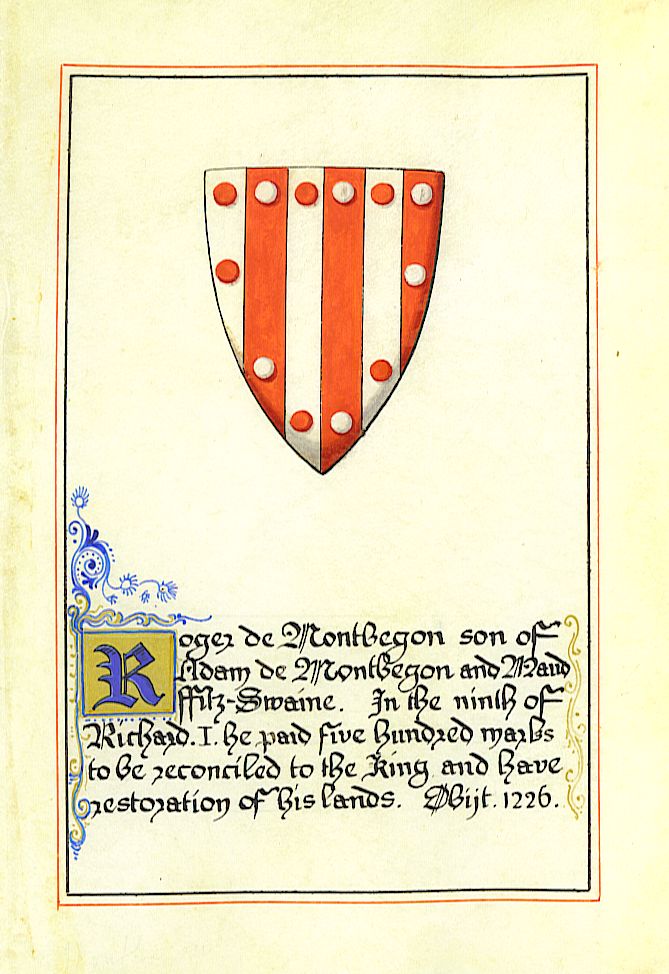 Roger de Montbegon son of
Adam de Montbegon and Maud
ffitz-Swaine. In the ninth of
Richard.I. he paid five hundred marks
to be reconciled to the King and have
restoration of his lands. Obijt. 1226.